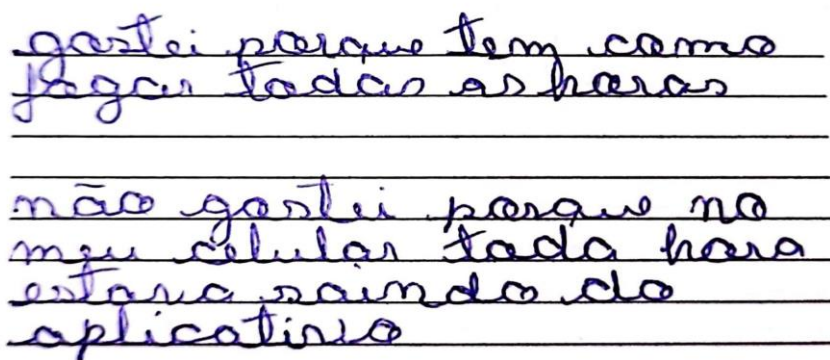 gostei porque tem como
jogar todas as horas
não gostei porque no
meu celular toda hora
estava saindo do
aplicativo